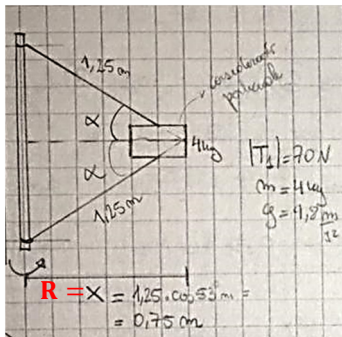 1,25m
considerado
partícula
α
4kg
α
1,25m
|T₁| = 70N
m = 4kg
g = 9,8 m/s²
R = X = 1,25 . cos 53° m =
= 0,75 m